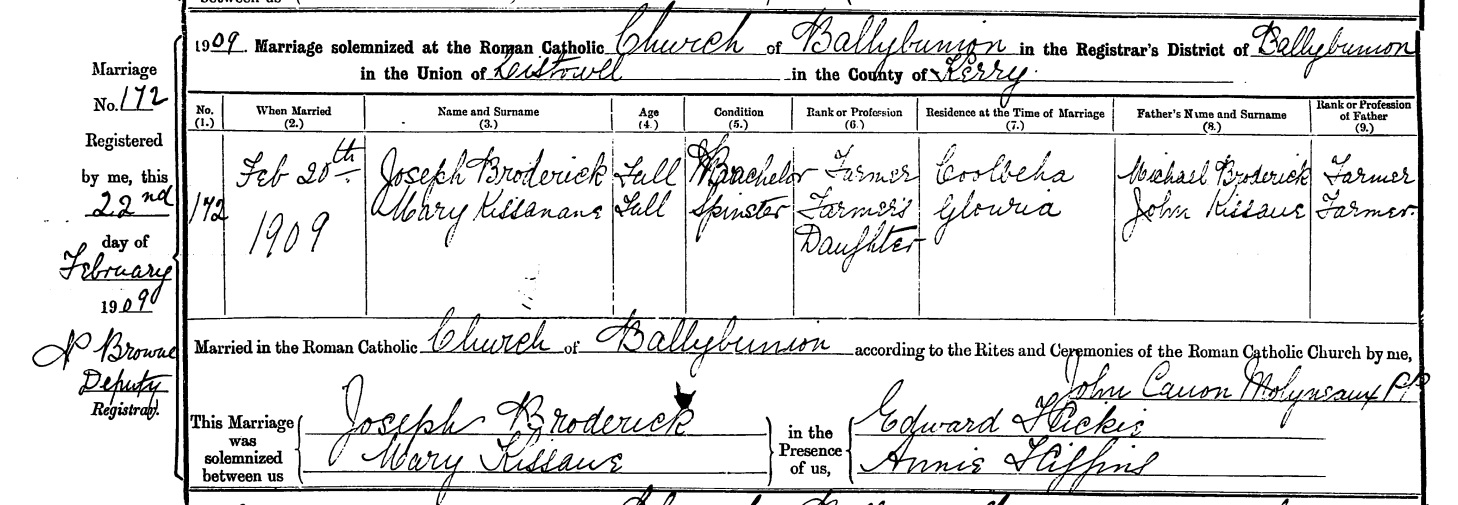 1909. Marriage solemnized at the Roman Catholic Church of Ballybunion in the Registrar's District of Ballybunion
in the Union of Listowell in the County of Kerry.
Marriage
No. 172
Registered
by me, this
22nd
day of
February
1909
N Browne
Deputy
Registrar.
No. (1.) When Married (2.) Name and Surname (3.) Age (4.) Condition (5.) Rank or Profession (6.) Residence at the Time of Marriage (7.) Father's Name and Surname (8.) Rank or Profession of Father (9.)
Feb 20th Joseph Broderick Full Bachelor Farmer Coolbeha Michael Broderick Farmer
172 1909 Mary Kissanane Full Spinster Farmer's Glouria John Kissane Farmer.
Daughter
Married in the Roman Catholic Church of Ballybunion according to the Rites and Ceremonies of the Roman Catholic Church by me,
John Canon Molyneaux PP
This Marriage was solemnized between us
Joseph Broderick
Mary Kissane
in the Presence of us,
Edward Hickie
Annie